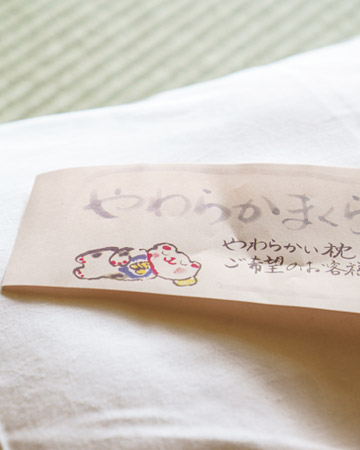 やわらかまくら
やわらかい枕
ご希望のお客様